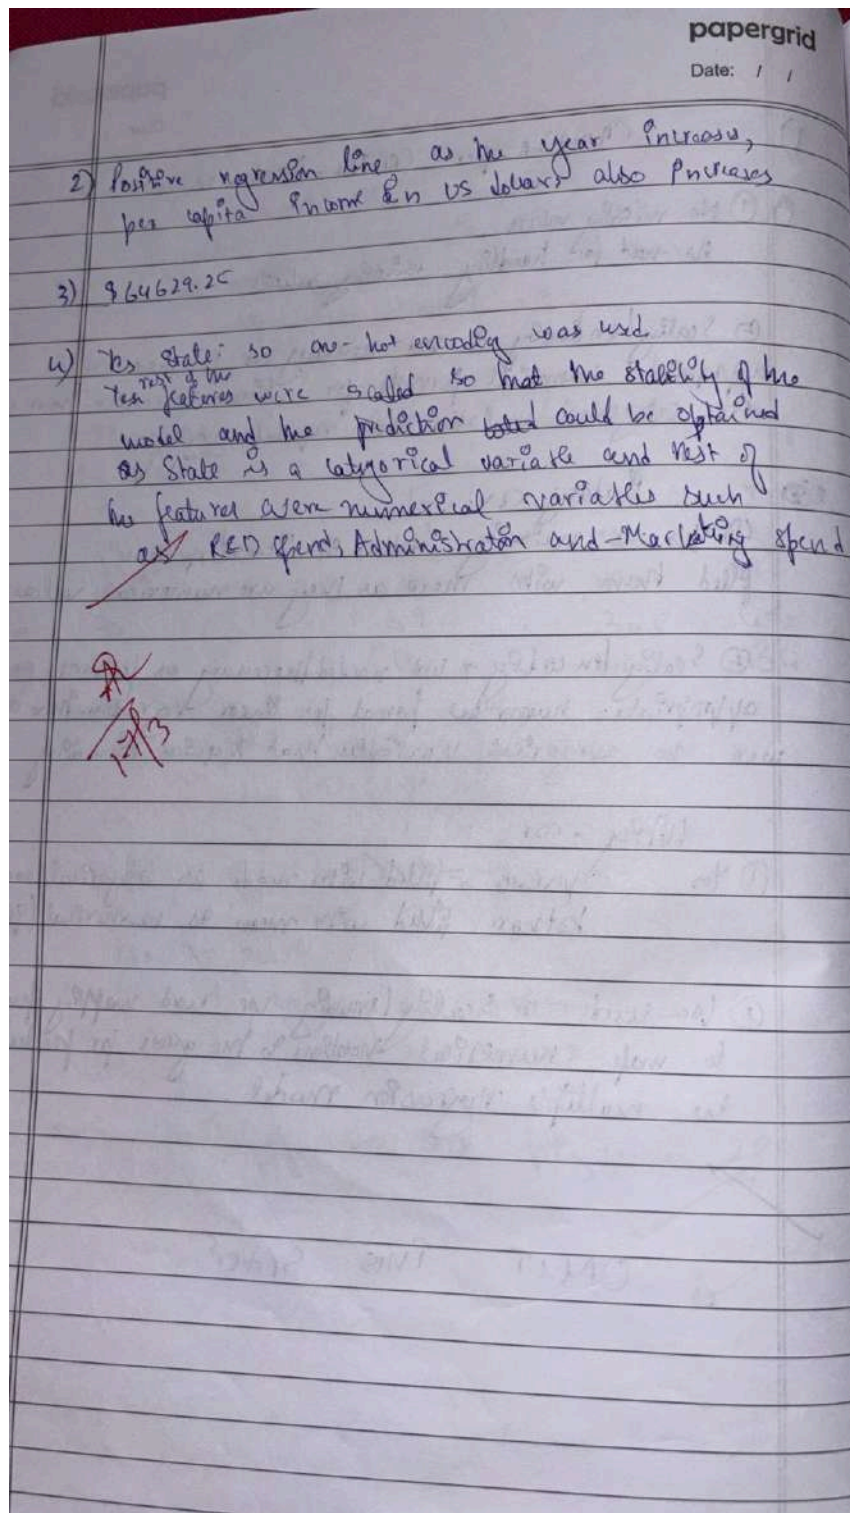 papergrid
Date: / /
2) Positive regression line as the year increases,
per capita income in US dollars also increases
3) $64629.25
4) Yes State: so one-hot encoding was used.
rest of the
Yes features were scaled so that the stability of the
model and the prediction could be obtained
as State is a categorical variable and rest of
the features were numerical variables such
as R&D spend, Administration and Marketing spend
17/3